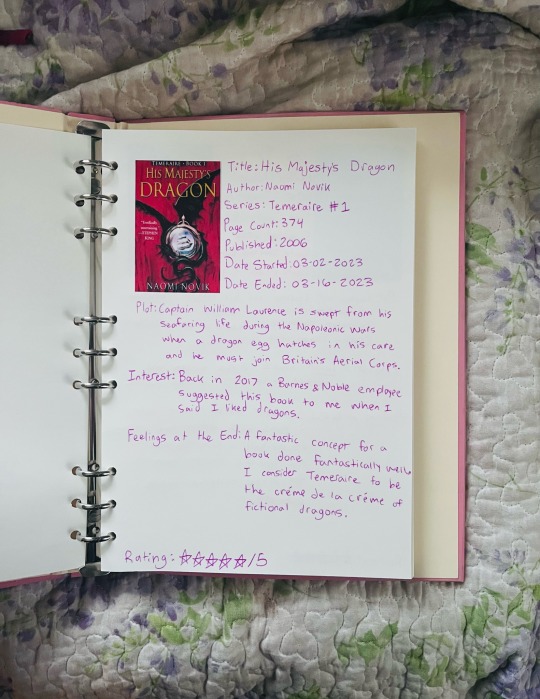 TEMERAIRE · BOOK 1
HIS MAJESTY'S
DRAGON
STEPHEN
KING
NAOMI NOVIK
Title: His Majesty's Dragon
Author: Naomi Novik
Series: Temeraire #1
Page Count: 374
Published: 2006
Date Started: 03-02-2023
Date Ended: 03-16-2023
Plot: Captain William Laurence is swept from his
seafaring life during the Napoleonic Wars
when a dragon egg hatches in his care
and he must join Britain's Aerial Corps.
Interest: Back in 2017 a Barnes & Noble employee
suggested this book to me when I
said I liked dragons.
Feelings at the End: A fantastic concept for a
book done fantastically well.
I consider Temeraire to be
the créme de la créme of
fictional dragons.
Rating: ☆☆☆☆☆/5